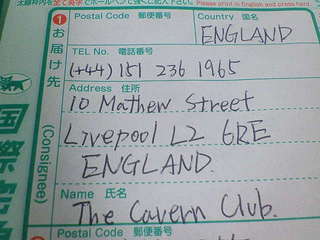 太線枠内を全て英字でボールペンで強くご記入下さい。Please print in English and press hard.
① お届け先 (Consignee)
Postal Code 郵便番号
Country 国名
ENGLAND
TEL No. 電話番号
(+44) 151 236 1965
Address 住所
10 Mathew Street
Liverpool L2 6RE
ENGLAND.
Name 氏名
The Cavern Club.
② Postal Code 郵便番号
国際